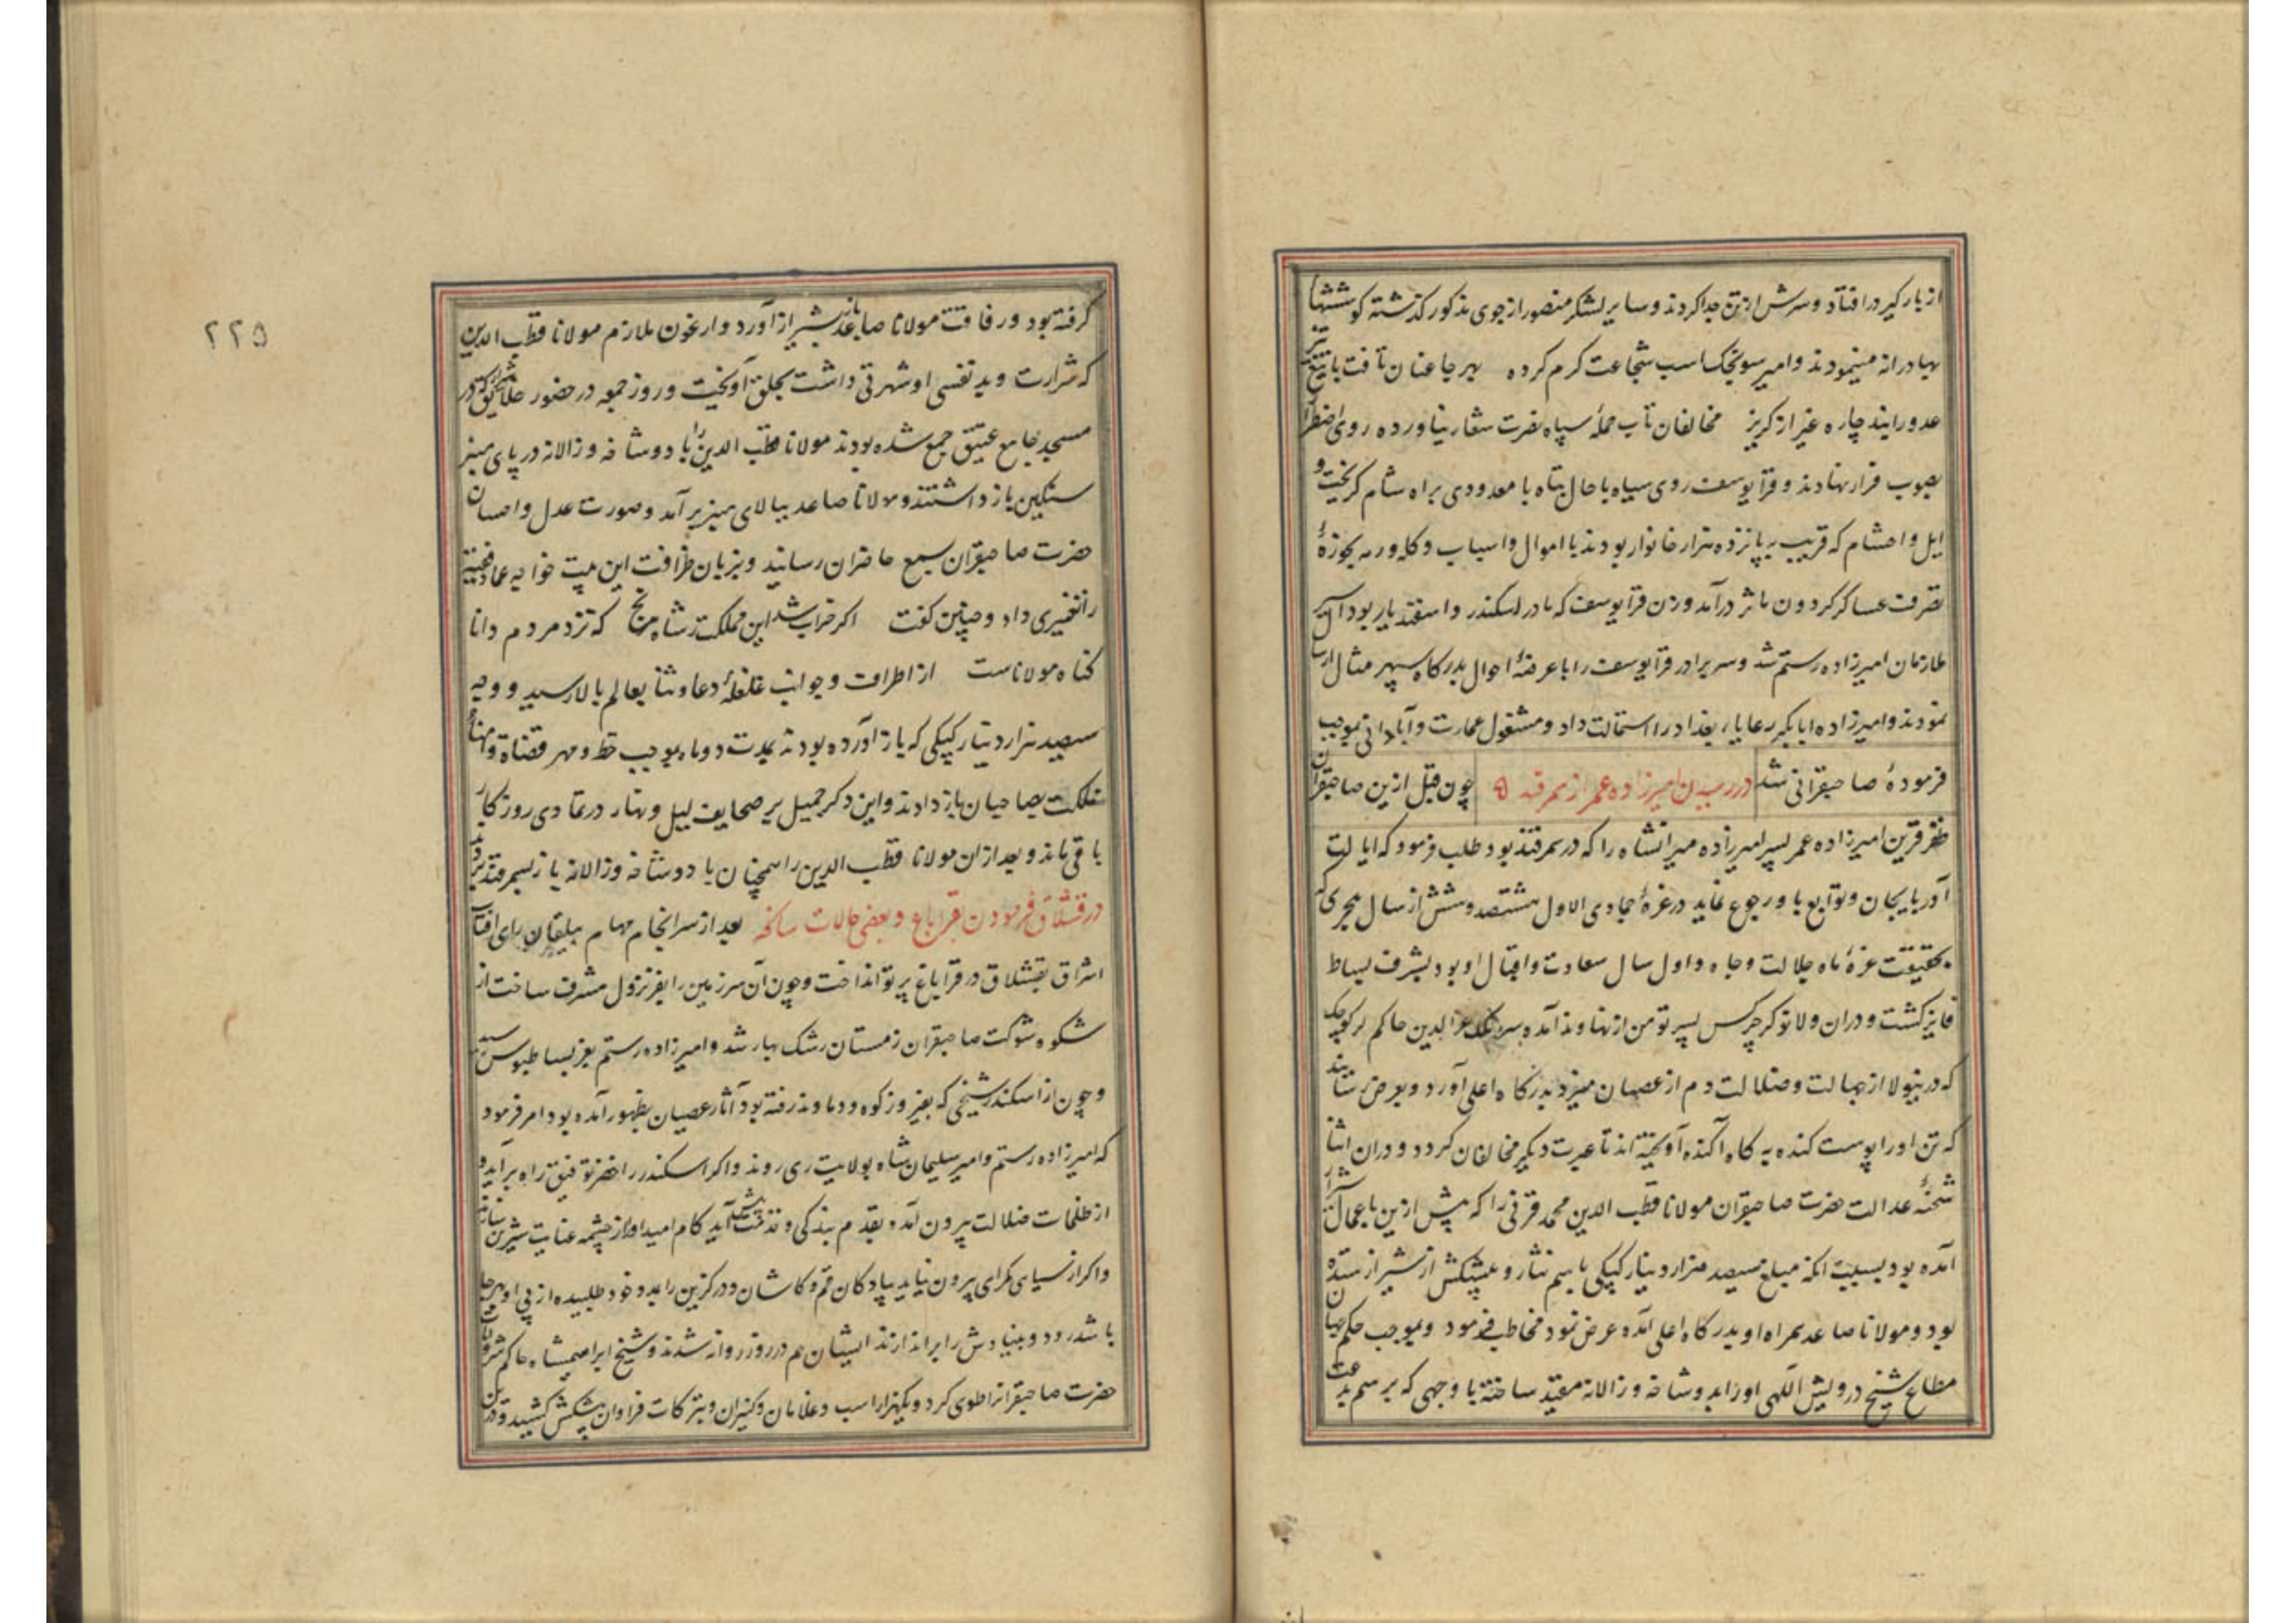 از بارگیر در افتاد و سرش از تن جدا کردند و سایر لشکر منصور از جوی مذکور گذشته کوششها
بهادرانه مینمودند و امیر سونجک اسب شجاعت گرم کرده بهر جا عنان تافت با تیغ تیز
عدو را نبد چاره غیر از گریز مخالفان تاب حملهٔ سپاه نصرت شعار نیاورده روی اضطرار
بصوب فرار نهادند و قرا یوسف روی سیاه با حال تباه با معدودی براه شام گریخت و
ایل و احشام که قریب به پانزده هزار خانوار بودند با اموال و اسباب و گله و رمه بحوزهٔ
تصرف عساکر گردون ماثر درآمد و زن قرا یوسف که مادر اسکندر و اسفندیار بود اسیر
ملازمان امیرزاده رستم شد و سر برادر قرا یوسف را با عرضهٔ احوال بدرگاه سپهر مثال ارسال
نمودند و امیرزاده ابابکر رعایاء بغداد را استمالت داد و مشغول عمارت و آبادانی بموجب
فرمودهٔ صاحبقرانی شد در رسیدن امیرزاده عمر از سمرقند چون قبل ازین صاحبقران
ظفر قرین امیرزاده عمر پسر امیرزاده میرانشاه را که در سمرقند بود طلب فرمود که ایالت
آذربایجان و توابع باو رجوع نماید در غرهٔ جمادی الاول هشتصد و شش از سال هجری که
بحقیقت غرهٔ ماه جلالت و جاه و اول سال سعادت و اقبال او بود بشرف بساط
فایز گشت و دران ولا نوکر چرکس پسر تومن از نهاوند آمده سر ملک عزالدین حاکم لر کوچک
که درینولا از جهالت و ضلالت دم از عصیان میزد بدرگاه اعلی آورد و بعرض رسانید
که تن او را پوست کنده به کاه آگنده آویخته اند تا عبرت دیگر مخالفان گردد و دران اثنا
شحنهٔ عدالت حضرت صاحبقران مولانا قطب الدین محمد قرنی را که پیش ازین با عمال شیراز
آمده بود بسبب آنکه مبلغ سیصد هزار دینار کپکی باسم نثار و پیشکش از شیراز ستده
بود و مولانا صاعد همراه او بدرگاه اعلی آمده عرض نمود مخاطب فرمود و بموجب حکم جهان
مطاع شیخ درویش اللهی او را بدوشاخه و زولانه مقید ساخته با وجهی که برسم بدعت
گرفته بود و رفاقت مولانا صاعد باز بشیراز آورد و ارغون ملازم مولانا قطب الدین
که شرارت و بد نفسی او شهرتی داشت بحلق آویخت و روز جمعه در حضور خلایق که در
مسجد جامع عتیق جمع شده بودند مولانا قطب الدین را با دوشاخه و زولانه در پای منبر
سنگین باز داشتند و مولانا صاعد ببالای منبر برآمد و صورت عدل و احسان
حضرت صاحبقران بسمع حاضران رسانید و بزبان ظرافت این بیت خواجه عماد فقیه
را تغییری داد و چنین گفت اگر خراب شد این مملکت ز شاه مرنج که نزد مردم دانا
گناه مولاناست از اطراف و جوانب غلغلهٔ دعا و ثنا بعالم بالا رسید و وجه
سیصد هزار دینار کپکی که باز آورده بودند بمدت دو ماه بموجب خط و مهر قضاة و امناء
مملکت بصاحبان باز دادند و این ذکر جمیل بر صحایف لیل و نهار در تمادی روزگار
باقی ماند و بعد ازان مولانا قطب الدین را همچنان با دوشاخه و زولانه باز بسمرقند بردند
در قشلاق فرمودن بقراباغ و بعضی حالات سانحه بعد از سرانجام مهام بیلقان رای آفتاب
اشراق بقشلاق در قراباغ پرتو انداخت و چون آن سرزمین را بفر نزول مشرف ساخت از
شکوه شوکت صاحبقران زمستان رشک بهار شد و امیرزاده رستم بعز بساطبوس رسید
و چون از اسکندر شیخی که بفیروزکوه و دماوند رفته بود آثار عصیان بظهور آمده بود امر فرمود
که امیرزاده رستم و امیر سلیمان شاه بولایت ری روند و اگر اسکندر را خضر توفیق راه برآید و
از ظلمات ضلالت بیرون آمده بقدم بندگی و ندامت پیش آید کام امید او از چشمه عنایت شیرین سازند
و اگر از سیاهی گمراهی بیرون نیاید پیادگان قم و کاشان و درگزین را بمدد خود طلبیده از پی او هر جا
باشد روند و بنیادش را براندازند ایشان هم در روز روانه شدند و شیخ ابراهیم شاه حاکم شروانات
حضرت صاحبقران را طوی کرد و یکهزار اسب و غلامان و کنیزان و تبرکات فراوان پیشکش کشید و درین
۲۲۵